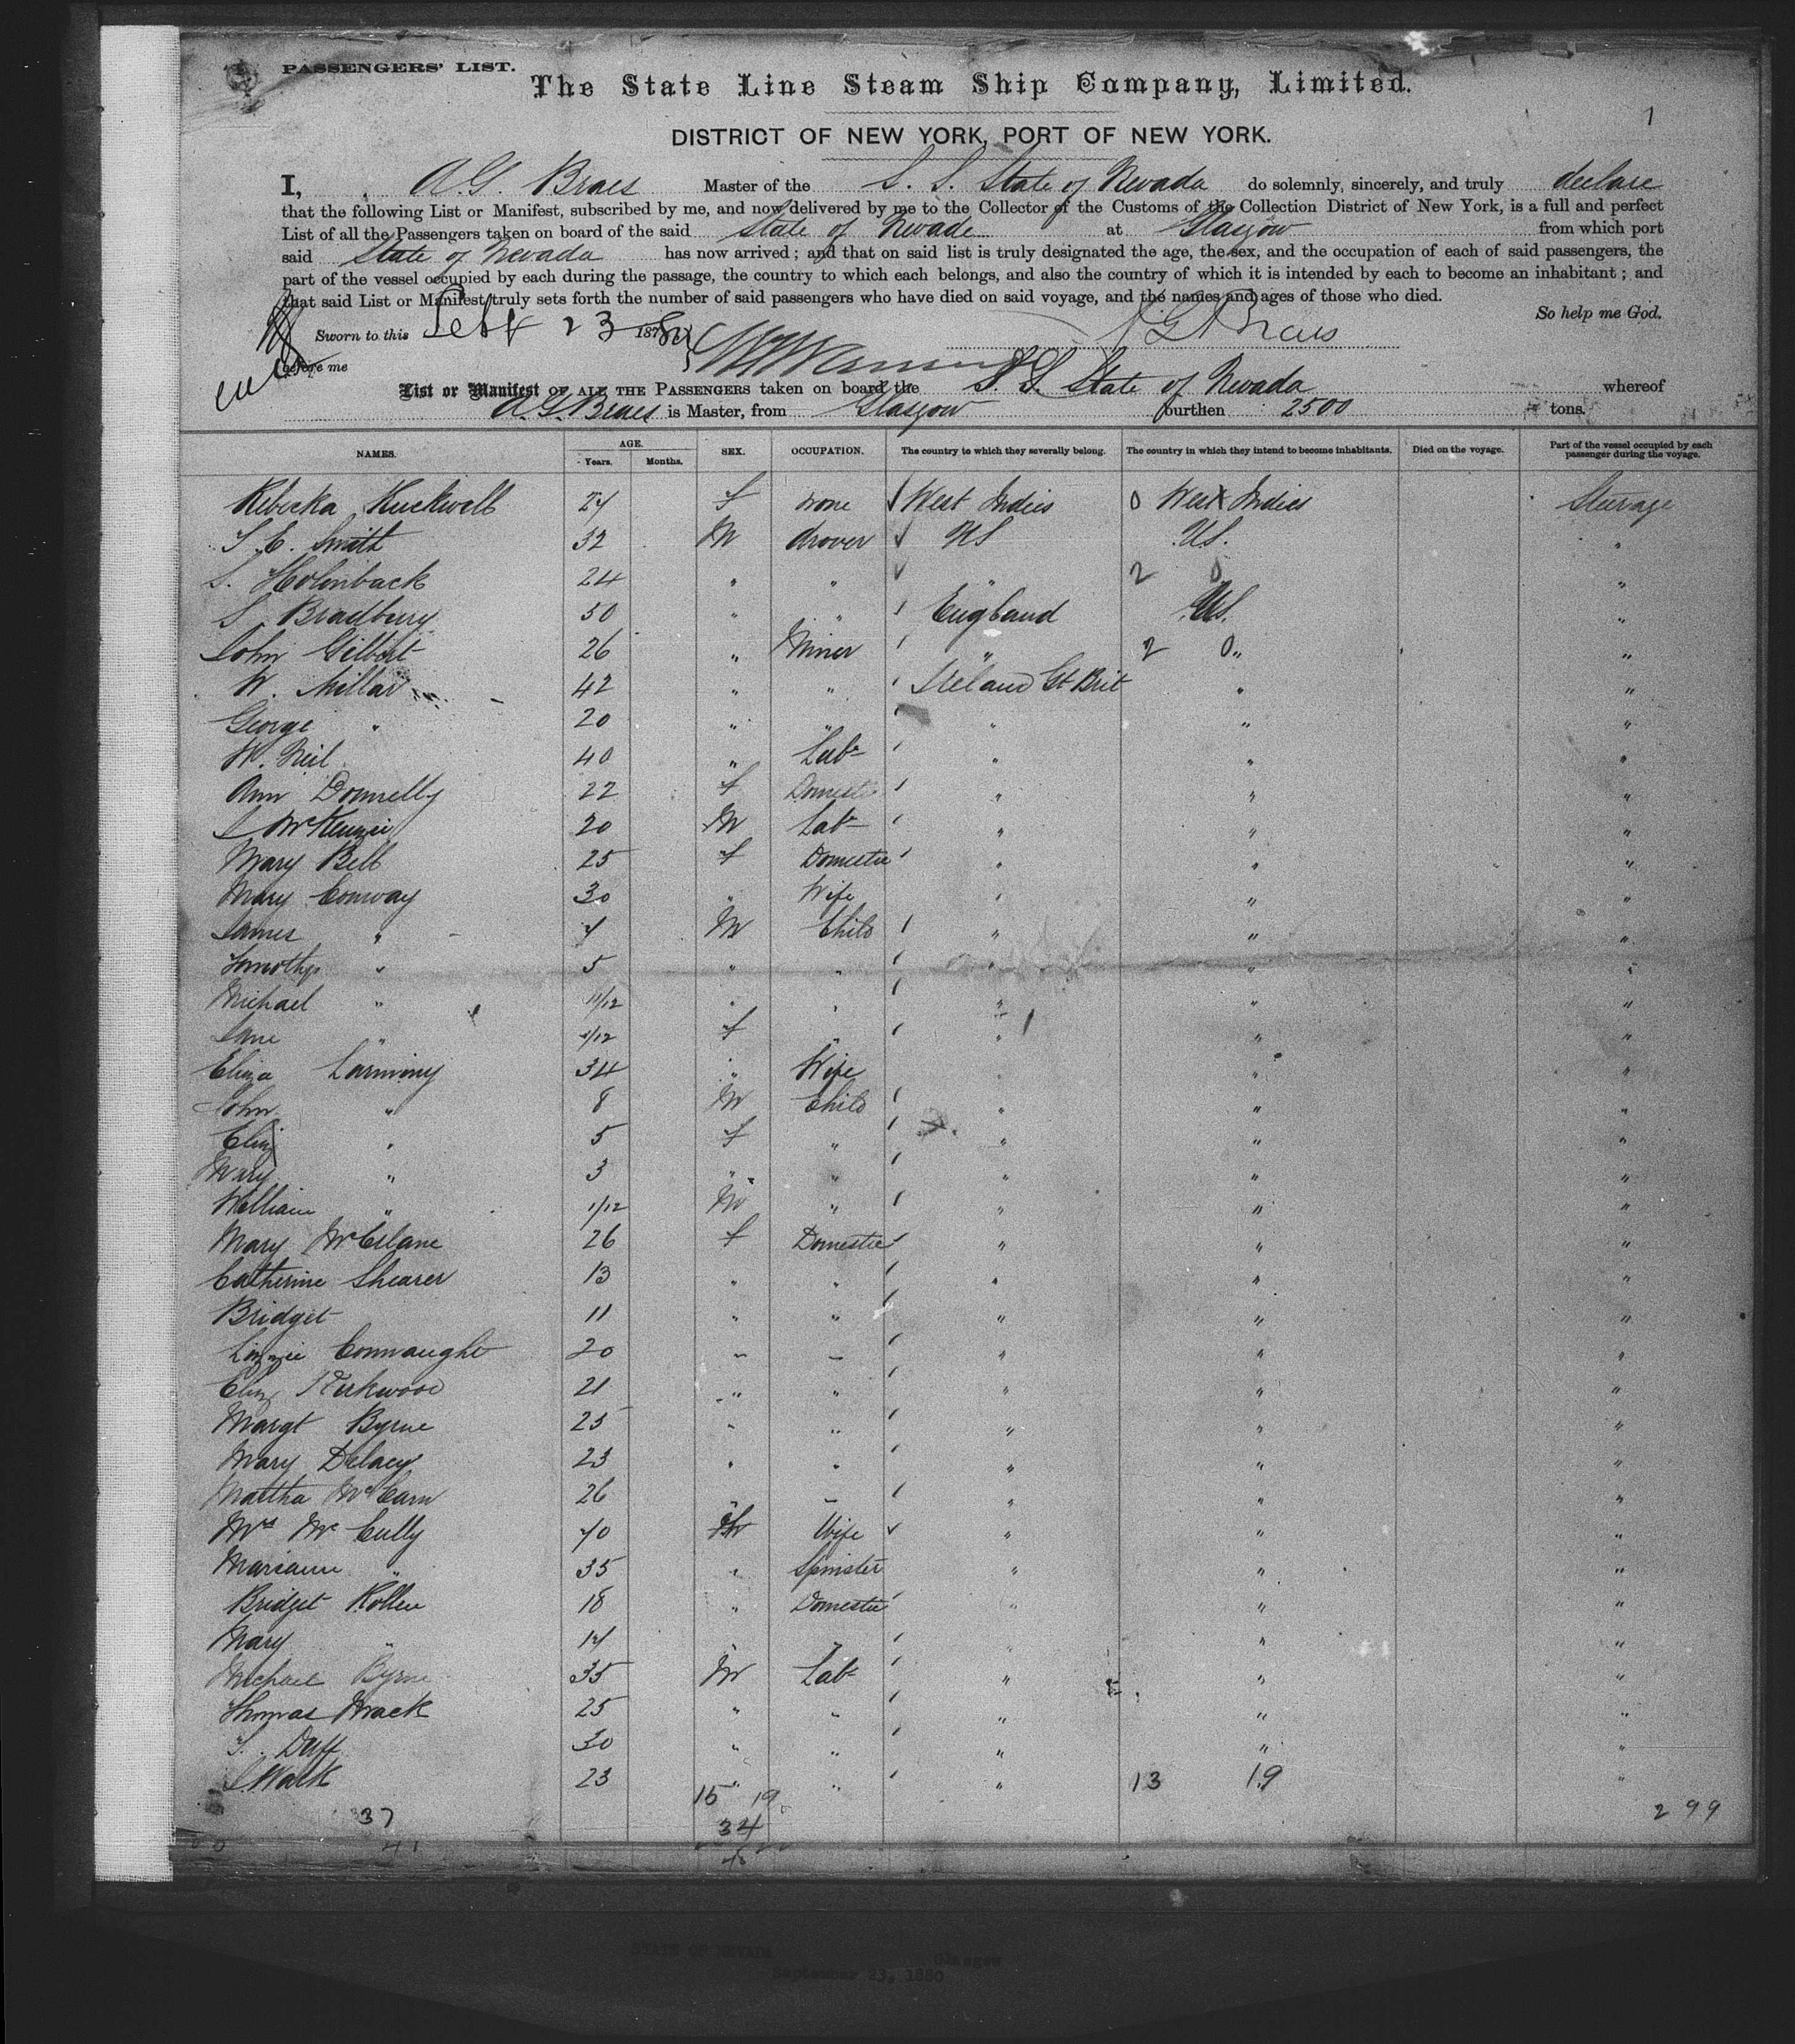 PASSENGERS' LIST.
The State Line Steam Ship Company, Limited.
1
DISTRICT OF NEW YORK, PORT OF NEW YORK.
I, A. G. Braes Master of the S. S. State of Nevada do solemnly, sincerely, and truly declare
that the following List or Manifest, subscribed by me, and now delivered by me to the Collector of the Customs of the Collection District of New York, is a full and perfect
List of all the Passengers taken on board of the said State of Nevada at Glasgow from which port
said State of Nevada has now arrived; and that on said list is truly designated the age, the sex, and the occupation of each of said passengers, the
part of the vessel occupied by each during the passage, the country to which each belongs, and also the country of which it is intended by each to become an inhabitant; and
that said List or Manifest truly sets forth the number of said passengers who have died on said voyage, and the names and ages of those who died.
So help me God.
Sworn to this Sept 23 1880 A G Braes
before me
List or Manifest OF ALL THE PASSENGERS taken on board the S. S. State of Nevada whereof
A. G. Braes is Master, from Glasgow burthen 2500 tons.
NAMES. AGE. Years. Months. SEX. OCCUPATION. The country to which they severally belong. The country in which they intend to become inhabitants. Died on the voyage. Part of the vessel occupied by each passenger during the voyage.
Rebecka 24 f none West Indies 0 West Indies Steerage
S. E. Smith 32 M drover US U.S. "
S. Holinback 24 " " " 2 0 "
S. Bradbury 30 " " England U.S. "
John Gilbert 26 " Miner " 2 0 " "
W. Millar 42 " " Ireland Gt Brit " "
George " 20 " " " " "
W. Neil 40 " Labr " " "
Ann Donnelly 22 f Domestic " " "
J McKenzie 20 M Labr " " "
Mary Bell 25 f Domestic " " "
Mary Conway 30 " Wife " " "
James " 7 M Child " " "
Timothy " 5 " " " " "
Michael " 11/12 " " " " "
Jane " 1/12 f " " " "
Eliza Larminy 34 " Wife " " "
John " 8 M Child " " "
Eliz " 5 f " " " "
Mary " 3 " " " " "
William " 1/12 M " " " "
Mary McErlane 26 f Domestic " " "
Catherine Shearer 13 " " " " "
Bridget 11 " " " " "
Lizzie Connaught 20 " " " " "
Eliz Kirkwood 21 " " " " "
Margt Byrne 25 " " " " "
Mary Delacy 23 " " " " "
Martha McCarn 26 " " " " "
Mrs Mc Cully 70 f Wife " " "
Mariann " 35 " Spinster " " "
Bridget Rollen 18 " Domestic " " "
Mary " 14 " " " " "
Michael Byrne 35 M Labr " " "
Thomas Mack 25 " " " " "
T. Duff 30 " " " " "
J. Wark 23 " " " 13 19 "
37 15 19 299
34
41
STATE OF NEVADA Glasgow
September 23, 1880